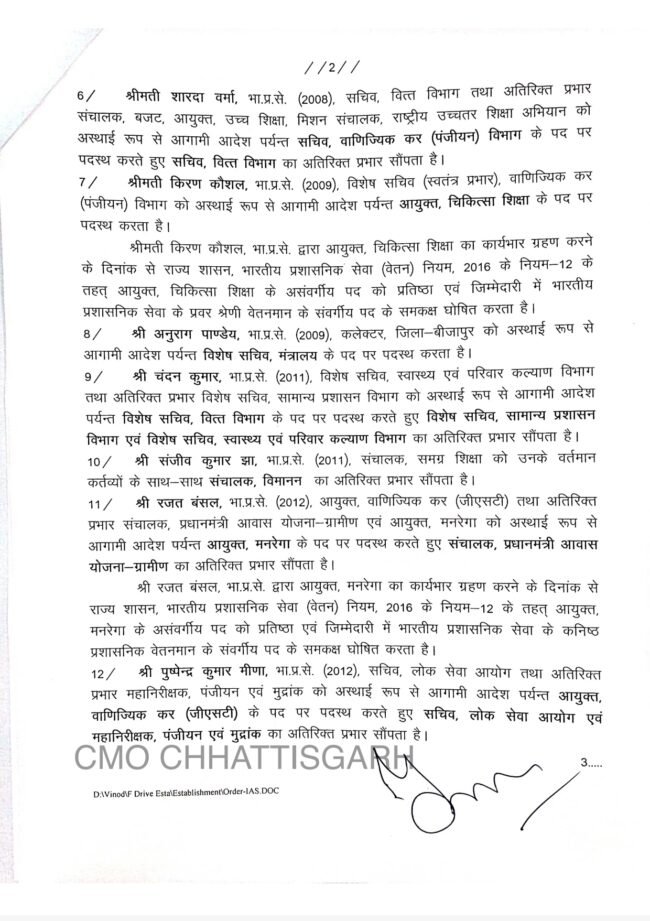 //2//
6/ श्रीमती शारदा वर्मा, भा.प्र.से. (2008), सचिव, वित्त विभाग तथा अतिरिक्त प्रभार
संचालक, बजट, आयुक्त, उच्च शिक्षा, मिशन संचालक, राष्ट्रीय उच्चतर शिक्षा अभियान को
अस्थाई रूप से आगामी आदेश पर्यन्त सचिव, वाणिज्यिक कर (पंजीयन) विभाग के पद पर
पदस्थ करते हुए सचिव, वित्त विभाग का अतिरिक्त प्रभार सौंपता है।
7/ श्रीमती किरण कौशल, भा.प्र.से. (2009), विशेष सचिव (स्वतंत्र प्रभार), वाणिज्यिक कर
(पंजीयन) विभाग को अस्थाई रूप से आगामी आदेश पर्यन्त आयुक्त, चिकित्सा शिक्षा के पद पर
पदस्थ करता है।
श्रीमती किरण कौशल, भा.प्र.से. द्वारा आयुक्त, चिकित्सा शिक्षा का कार्यभार ग्रहण करने
के दिनांक से राज्य शासन, भारतीय प्रशासनिक सेवा (वेतन) नियम, 2016 के नियम–12 के
तहत् आयुक्त, चिकित्सा शिक्षा के असंवर्गीय पद को प्रतिष्ठा एवं जिम्मेदारी में भारतीय
प्रशासनिक सेवा के प्रवर श्रेणी वेतनमान के संवर्गीय पद के समकक्ष घोषित करता है।
8/ श्री अनुराग पाण्डेय, भा.प्र.से. (2009), कलेक्टर, जिला–बीजापुर को अस्थाई रूप से
आगामी आदेश पर्यन्त विशेष सचिव, मंत्रालय के पद पर पदस्थ करता है।
9/ श्री चंदन कुमार, भा.प्र.से. (2011), विशेष सचिव, स्वास्थ्य एवं परिवार कल्याण विभाग
तथा अतिरिक्त प्रभार विशेष सचिव, सामान्य प्रशासन विभाग को अस्थाई रूप से आगामी आदेश
पर्यन्त विशेष सचिव, वित्त विभाग के पद पर पदस्थ करते हुए विशेष सचिव, सामान्य प्रशासन
विभाग एवं विशेष सचिव, स्वास्थ्य एवं परिवार कल्याण विभाग का अतिरिक्त प्रभार सौंपता है।
10/ श्री संजीव कुमार झा, भा.प्र.से. (2011), संचालक, समग्र शिक्षा को उनके वर्तमान
कर्तव्यों के साथ–साथ संचालक, विमानन का अतिरिक्त प्रभार सौंपता है।
11/ श्री रजत बंसल, भा.प्र.से. (2012), आयुक्त, वाणिज्यिक कर (जीएसटी) तथा अतिरिक्त
प्रभार संचालक, प्रधानमंत्री आवास योजना–ग्रामीण एवं आयुक्त, मनरेगा को अस्थाई रूप से
आगामी आदेश पर्यन्त आयुक्त, मनरेगा के पद पर पदस्थ करते हुए संचालक, प्रधानमंत्री आवास
योजना–ग्रामीण का अतिरिक्त प्रभार सौंपता है।
श्री रजत बंसल, भा.प्र.से. द्वारा आयुक्त, मनरेगा का कार्यभार ग्रहण करने के दिनांक से
राज्य शासन, भारतीय प्रशासनिक सेवा (वेतन) नियम, 2016 के नियम–12 के तहत् आयुक्त,
मनरेगा के असंवर्गीय पद को प्रतिष्ठा एवं जिम्मेदारी में भारतीय प्रशासनिक सेवा के कनिष्ठ
प्रशासनिक वेतनमान के संवर्गीय पद के समकक्ष घोषित करता है।
12/ श्री पुष्पेन्द्र कुमार मीणा, भा.प्र.से. (2012), सचिव, लोक सेवा आयोग तथा अतिरिक्त
प्रभार महानिरीक्षक, पंजीयन एवं मुद्रांक को अस्थाई रूप से आगामी आदेश पर्यन्त आयुक्त,
वाणिज्यिक कर (जीएसटी) के पद पर पदस्थ करते हुए सचिव, लोक सेवा आयोग एवं
महानिरीक्षक, पंजीयन एवं मुद्रांक का अतिरिक्त प्रभार सौंपता है।
CMO CHHATTISGARH
3.....
D:\Vinod\F Drive Esta\Establishment\Order-IAS.DOC